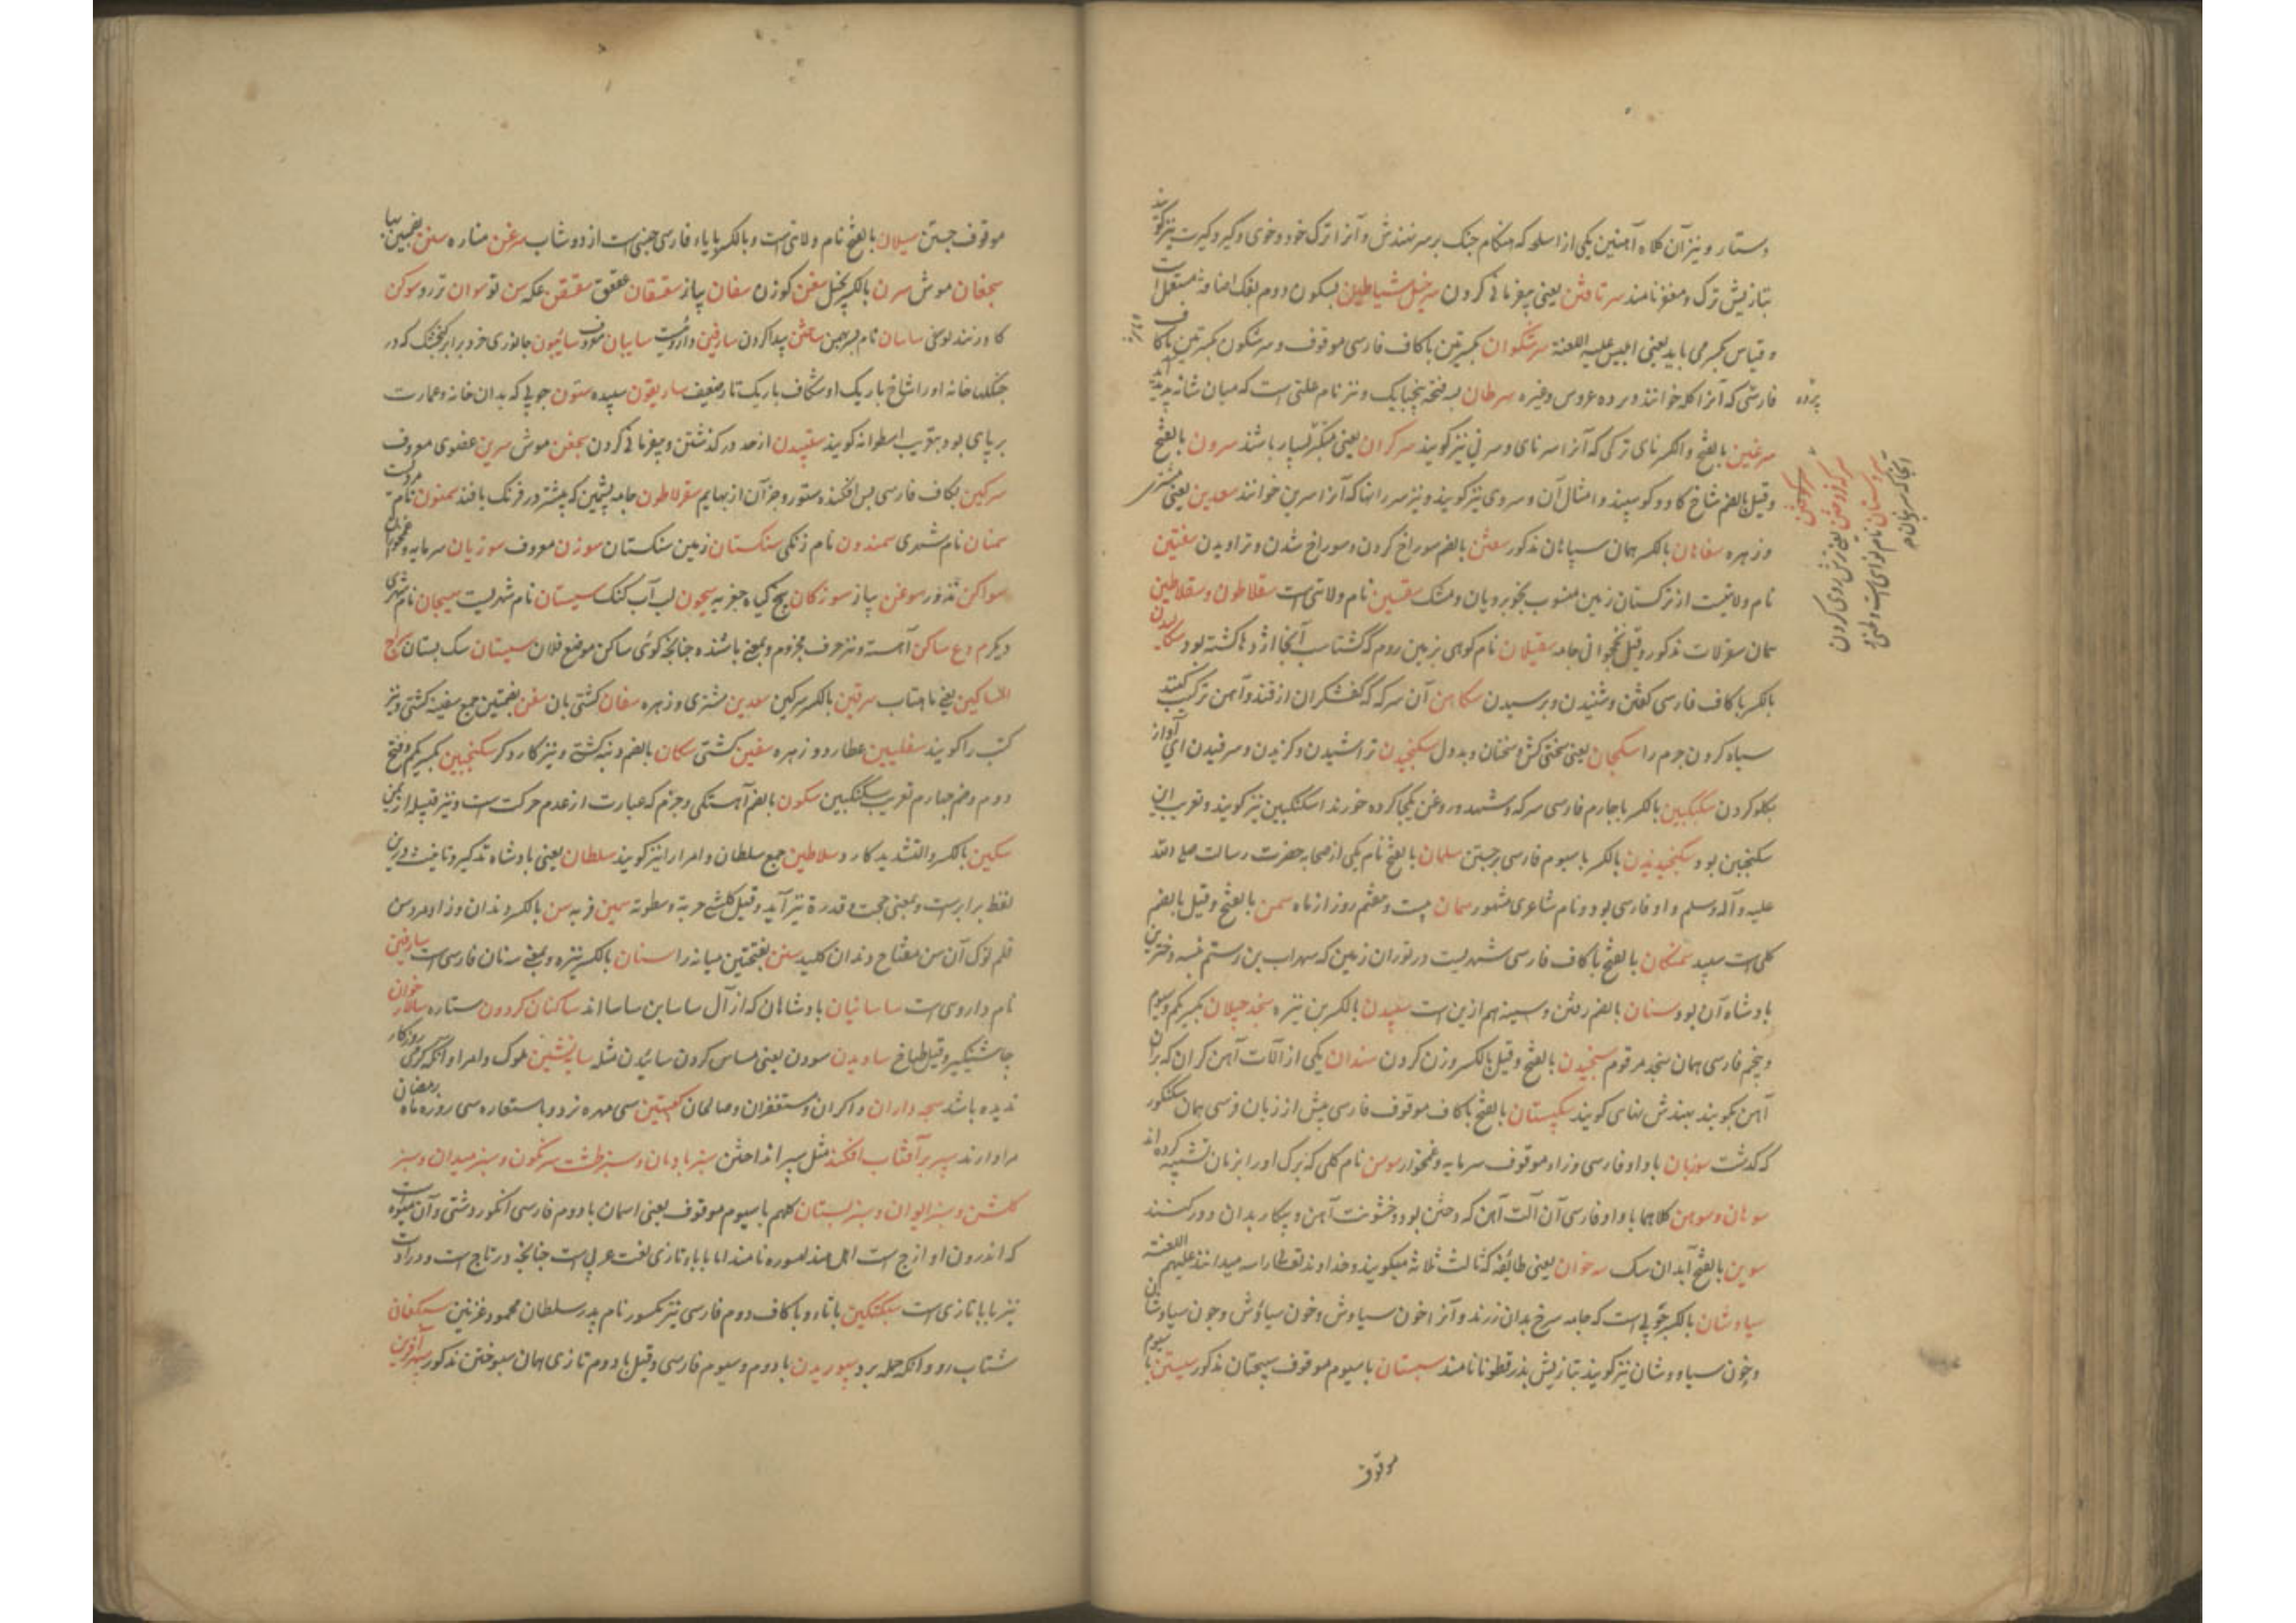 دستار و نیز آن کلاه آهنین یکی از اسلحه که هنگام جنک بر سر نهندش و آنرا ترک خود و خوی و گبر و گبرت نیز گویند
بتازیش ترک و مغفر نامند سر تافتن یعنی بیفرمانی کردن سرخیل شیاطین بسکون دوم بفک اضافة مستعمل است
و قیاس بکسر می باید یعنی ابلیس علیه اللعنة سرشکوان بکسرتین با کاف فارسی موقوف و سرشکون بکسرتین با کاف
فارسی که آنرا کله خوانند و پرده عروس وغیره سرطان بسه فتحه پنجپایک و نیز نام علتی است که میان شانه پدید آید
سرغین بالفتح والکسر نای ترکی که آنرا سرنای و سرنی نیز گویند سرکران یعنی متکبر بسیار باشند سرون بالفتح
وقیل بالضم شاخ کاو و کوسپند و امثال آن و سروی نیز گویند و نیز سررانها که آنرا سرین خوانند سعدین یعنی مشتری
و زهره سفاهان بالکسر همان سپاهان مذکور سفتن بالضم سوراخ کردن و سوراخ شدن و تراویدن سفتین
نام ولایتیست از ترکستان زمین منسوب بخوبرویان و مشک سقسین نام ولایتی است سقلاطون و سقلاطین
همان سقرلات مذکور وقیل نخجوانی جامه سقیلان نام کوهی بزمین روم گشتاسب آنجا اژدها کشته بود سکالیدن
بالکسر با کاف فارسی کفتن و شنیدن و پرسیدن سکاهن آن سرکه که کفشگران از قند و آهن ترکیب کنند
سیاه کردن جرم را سکجان یعنی سختی کش و سخنان و بد دل سکنجیدن تراشیدن و گزیدن و سرفیدن ای آواز
بگلو کردن سکنگبین بالکسر با جارم فارسی سرکه و شهد و روغن یکجا کرده خورند اسکنگبین نیز گویند و تعریب این
سکنجبین بود سکنجیدن بالکسر با سیوم فارسی برجستن سلمان بالفتح نام یکی از صحابه حضرت رسالت صلی الله
علیه و آله وسلم و او فارسی بود و نام شاعری مشهور سمان بیست و هفتم روز از ماه سمن بالفتح وقیل بالضم
کلی است سپید سمنکان بالفتح با کاف فارسی شهریست در توران زمین که سهراب بن رستم نبسه و دخترین
بادشاه آن بود سنان بالضم رفتن و سینه هم ازین است بالکسر بن نیزه سنجد جیلان بکسر یکم و سیوم
و پنجم فارسی همان سنجد مرقوم سنجیدن بالفتح وقیل بالکسر وزن کردن سندان یکی از آلات آهن کران که بران
آهن بکوبند بهندش نهای گویند سنکپستان بالفتح با کاف موقوف فارسی پیش از زبان فرسی همان سنکور
که گذشت سوزیان با واو فارسی و زاء موقوف سرمایه و غمخوار سوسن نام کلی که برک او را بزبان تشبیه کرده اند
سوهان و سوهن کلاهما با واو فارسی آن آلت آهن که و خشونت آهن و بیکار بدان دور کنند
سوین بالفتح آبدان سک سه خوان یعنی طائفه که ثالث ثلاثه میگویند و خداوند تعالی را سه میدانند علیهم اللعنة
سیاوشان بالکسر چوبی است که جامه سرخ بدان رزند و آنرا خون سیاوش و خون سیاؤش و خون سیاوشان
و خون سیاه وشان نیز گویند بتازیش بذر قطونا نامند سیستان با سیوم موقوف سیستان مذکور سیستن با سیوم
موقوف
پرده
سرکوفتن
سرکه فروختن یعنی ترش روی کردن
سروستان نام نوای است و
موقوف جستن سیلان بالفتح نام ولایتیست و بالکسر با یاء فارسی جنسی است از دوشاب سرغن مناره سفن بضمتین بها
سجغان موش سرن بالکسر نخیل سغن کوزن سفان پیاز سقسقان عقعق سقسقن عکه سن تو سوان تررو سوکن
کاو زند لوسی ساسان نام پسر بهمن ساختن پیدا کردن سارفین داروییست سایبان معروف سائیون جانوری خرد برابر کنجشک که در
جنگلها خانه او را شاخ باریک او شکاف باریک تار ضعیف ساریقون سپیده ستون چوبی که بدان خانه و عمارت
بر پای بود و بتعریب اسطوانه گویند سقپیدن از حد در گذشتن و بیفرمانی کردن سجغن موش سرین عضوی معروف
سرکین بکاف فارسی پس افکنده ستور و جز آن از بهایم سقرلاطون جامه پشمین که بیشتر در فرنک بافند سمنون نام مردیست
سمنان نام شهری سمندون نام زنگی سنکستان زمین سنکستان سوزن معروف سوزیان سرمایه و غمخواری
سواکن تذرو سوغن پیاز سوزکان بیخ گیاه جفریه سیحون لب آب گنگ سیستان نام شهریست سیجان نام شهری
دیکرم دع ساکن آهسته و نیز حرف مجزوم و بمعنی باشنده جنانکه کوئی ساکن موضع فلان سیستان سک بستان سراج
المساکین یعنی ماهتاب سرقین بالکسر سرکین سعدین مشتری و زهره سفان کشتی بان سفن بضمتین جمع سفینه کشتی و نیز
کتب را گویند سفلیین عطارد و زهره سفین کشتی سکان بالضم دنبه کشتی و نیز کارد کر سکنجبین بکسر یکم و فتح
دوم و ضم جهارم تعریب سکنگبین سکون بالضم آهستکی و جزم که عبارت از عدم حرکت است و نیز قبیله از یمن
سکین بالکسر والتشدید کارد سلاطین جمع سلطان و امرا را نیز گویند سلطان یعنی بادشاه تذکیر و تانیث درین
لفظ برابرست و بمعنی حجت و قدرة نیز آید وقیل کلشی حربة و سطوته سمین فربه سن بالکسر دندان و زاد و عروس
قلم نوک آن سن مفتاح دندان کلید سنن بفتحتین میانه راه سنان بالکسر نیزه و بمعنی سنان فارسی است سارفین
نام داروی است ساسانیان بادشاهان که از آل ساسان بن ساسانند ساکنان کردون ستاره سالار خوان
جاشنیگیر وقیل طباخ ساویدن سودن یعنی مساس کردن سائیدن مثله سایه نشین ملوک و امرا و آنکه گرمی روزکار
ندیده باشد سبحه داران ذاکران و مستغفران و صالحان کعبتین سی مهره نرد و باستعاره سی روزه ماه رمضان
مراد دارند سپر بر آفتاب افکند مثل سپر انداختن سبز بادبان و سبز طشت سرنکون و سبز میدان و سبز
کلشن و سبز ایوان و سبز بستان کلهم با سیوم موقوف یعنی اسمان با دوم فارسی انکور دشتی و آن میوه است
که اندرون او از ج است اهل هند لسوره نامند اما با باء تازی لغت عربی است جنانکه در تاج است و در ادات
نیز با باء تازی است سبکتکین با تاء و با کاف دوم فارسی نیز مکسور نام پدر سلطان محمود غزنین سبکعنان
شتاب رو و آنکه حمله برد سپوریدن با دوم و سیوم فارسی وقیل با دوم تازی همان سپوختن مذکور سپهر آفرین